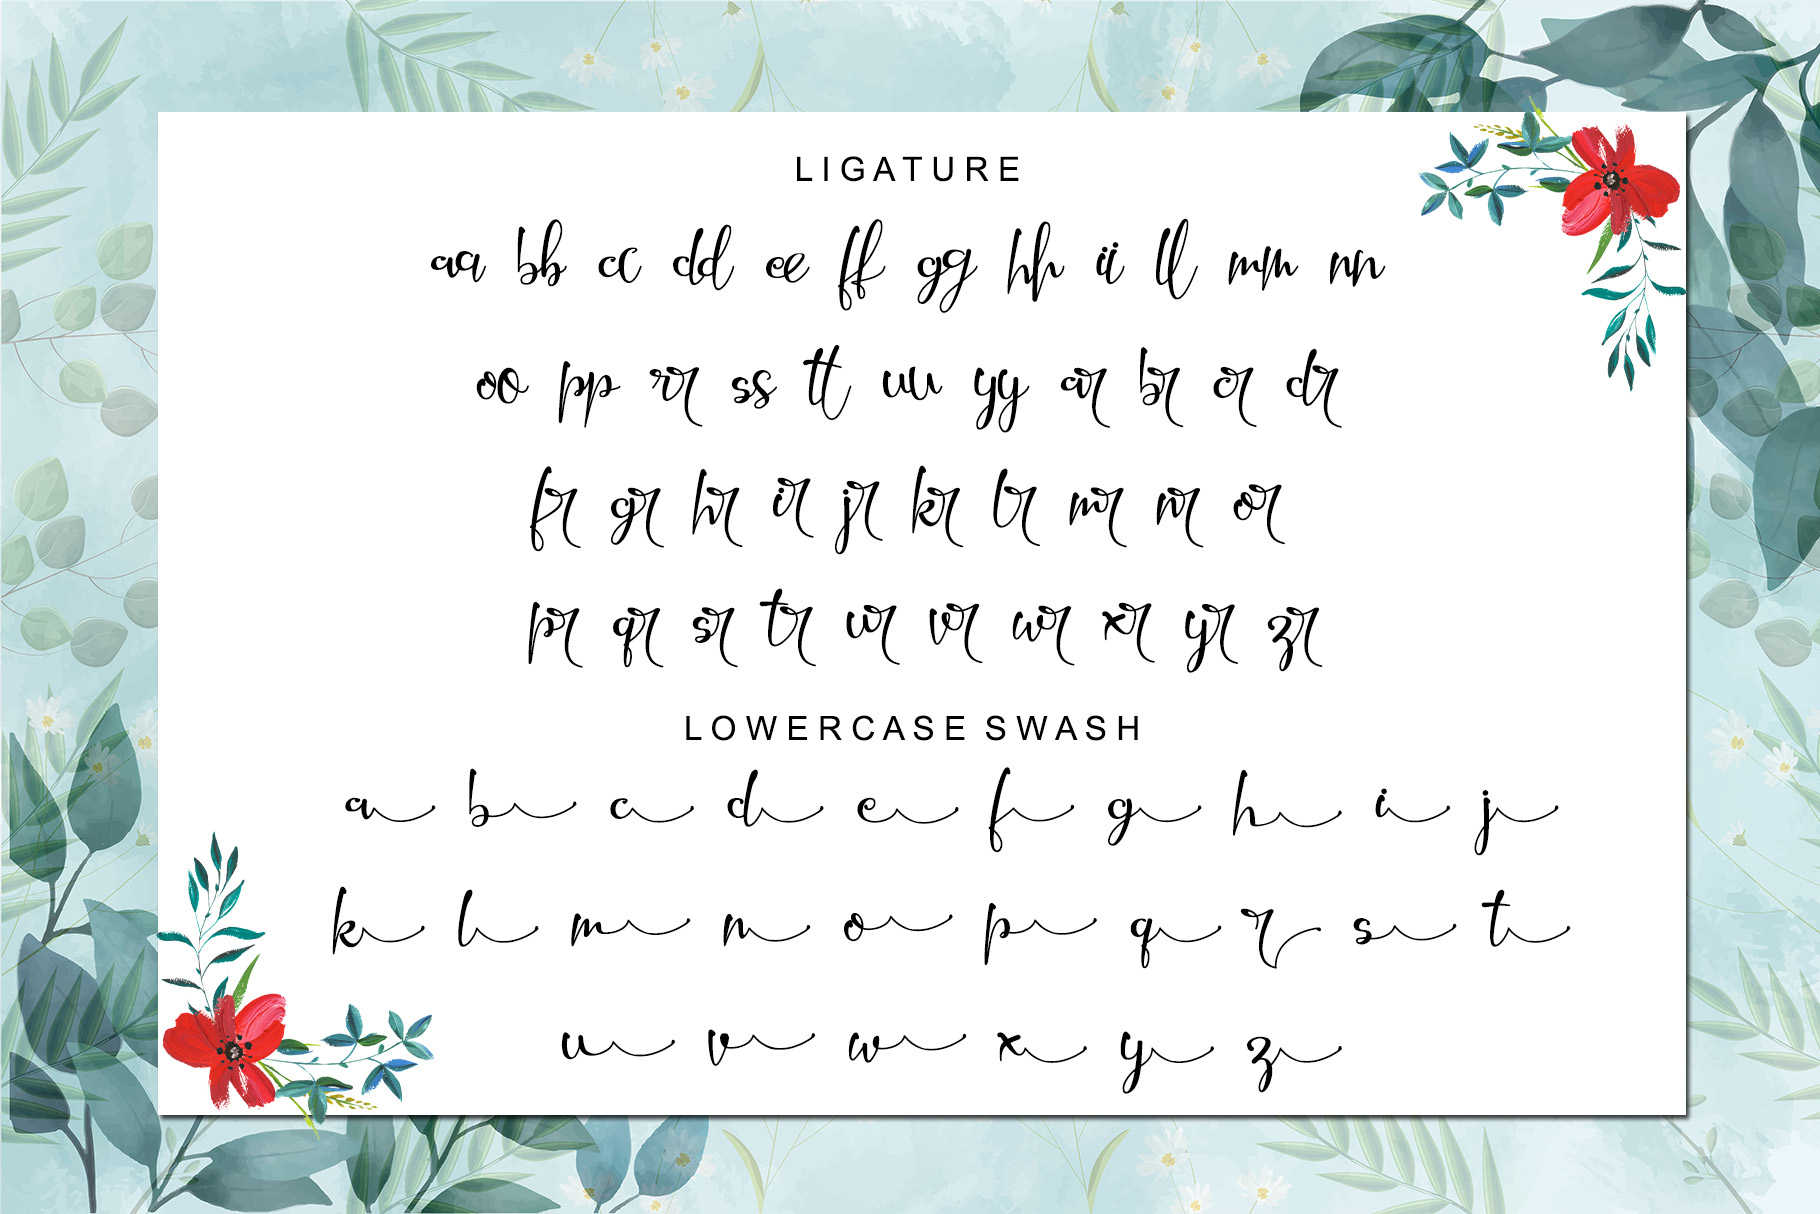 LIGATURE
aa bb cc dd ee ff gg hh ii ll mm nn
oo pp rr ss tt uu yy ar br cr dr
fr gr hr ir jr kr lr mr nr or
pr qr sr tr ur vr wr xr yr zr
LOWERCASE SWASH
a b c d e f g h i j
k l m n o p q r s t
u v w x y z